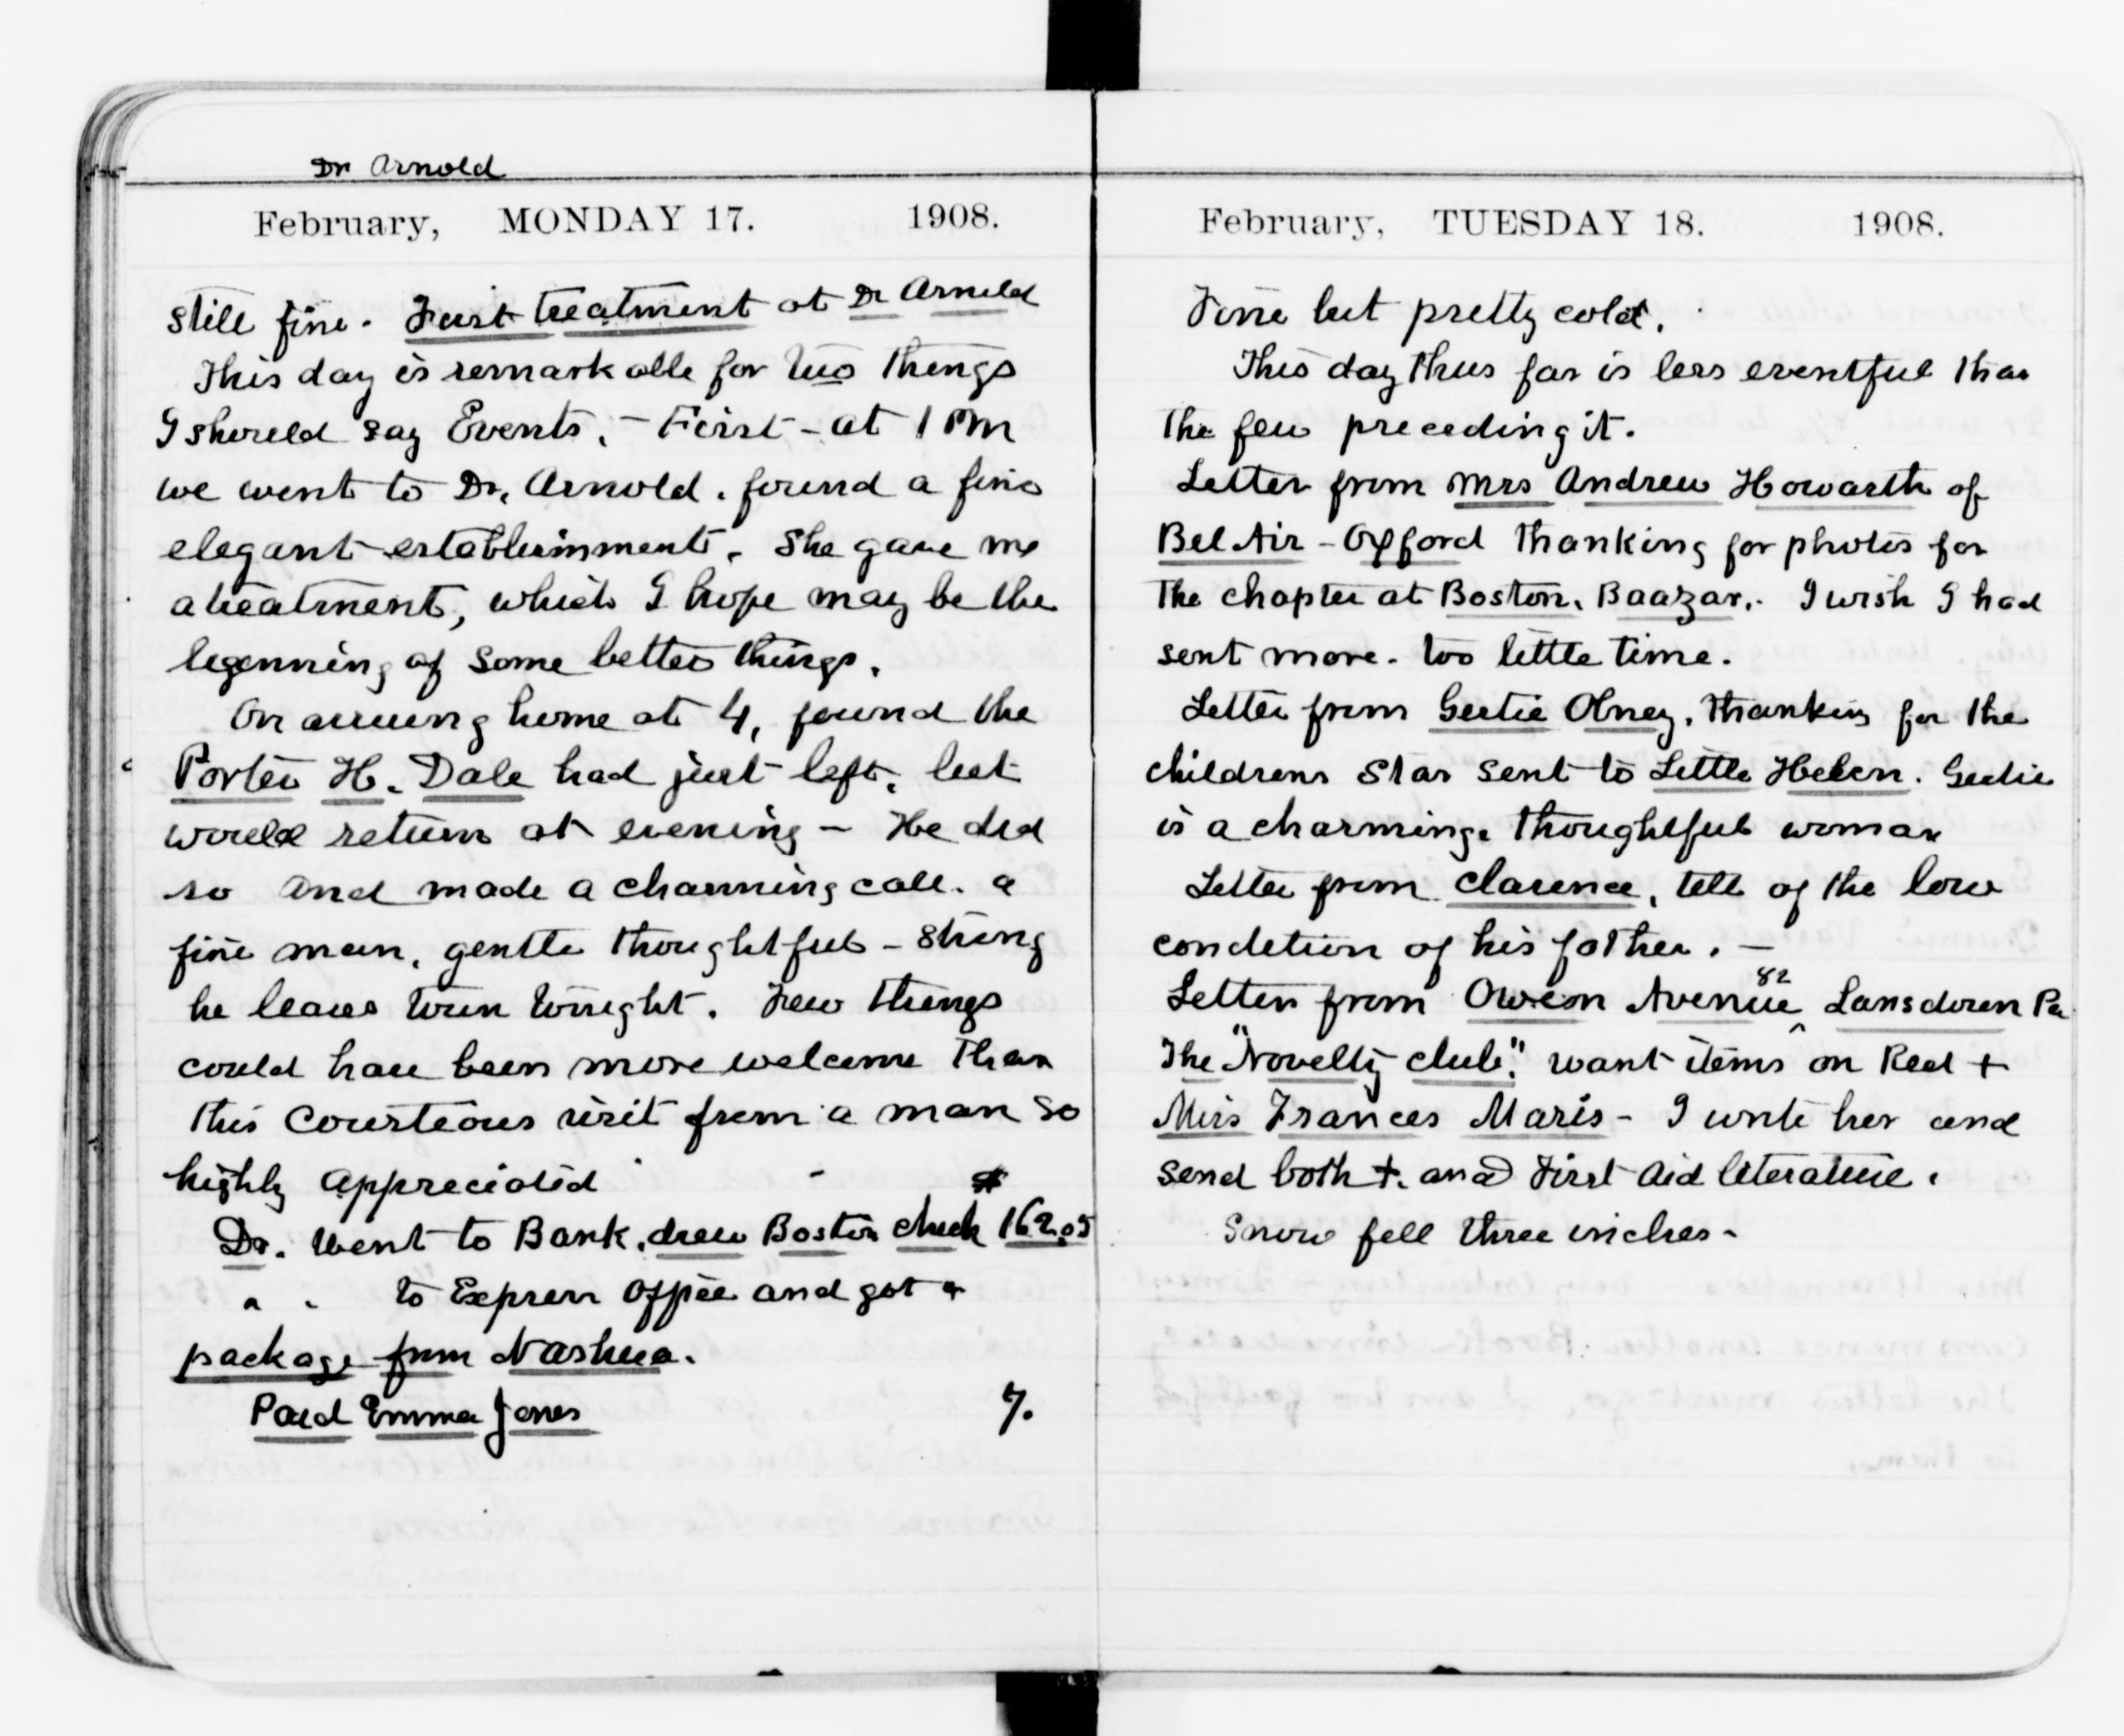 Dr Arnold
February, MONDAY 17. 1908.
Still fine. First treatment at Dr Arnold
This day is remarkable for two things
I should say Events. - First - at 1 PM
we went to Dr. Arnold. found a fine
elegant establishment. She gave me
a treatment, which I hope may be the
begenning of some better things.
On arriving home at 4, found the
Porter H. Dale had just left. but
would return at evening - He did
so and made a charming call. a
fine man, gentle thoughtful - strong
he leaves town tonight. Few things
could have been more welcome than
this courteous visit from a man so
highly appreciated - $
Dr. went to Bank, drew Boston check 162.05
" " to Express Office and got a
package from Nashua.
Paid Emma Jones 7.
February, TUESDAY 18. 1908.
Fine but pretty cold.
This day thus far is less eventful than
the few preceding it.
Letter from Mrs Andrew Howarth of
Bel Air - Oxford thanking for photos for
the chapter at Boston, Baazar. I wish I had
sent more. too little time.
Letter from Gertie Olney, thanking for the
childrens Star sent to Little Helen. Gertie
is a charming, thoughtful woman
Letter from Clarence, tell of the low
condition of his father. -
82
Letter from Owen Avenue ^ Lansdown Pa
The "Novelty club". want items on Red +
Miss Frances Maris - I write her and
send both +. and First Aid literature.
Snow fell three inches -